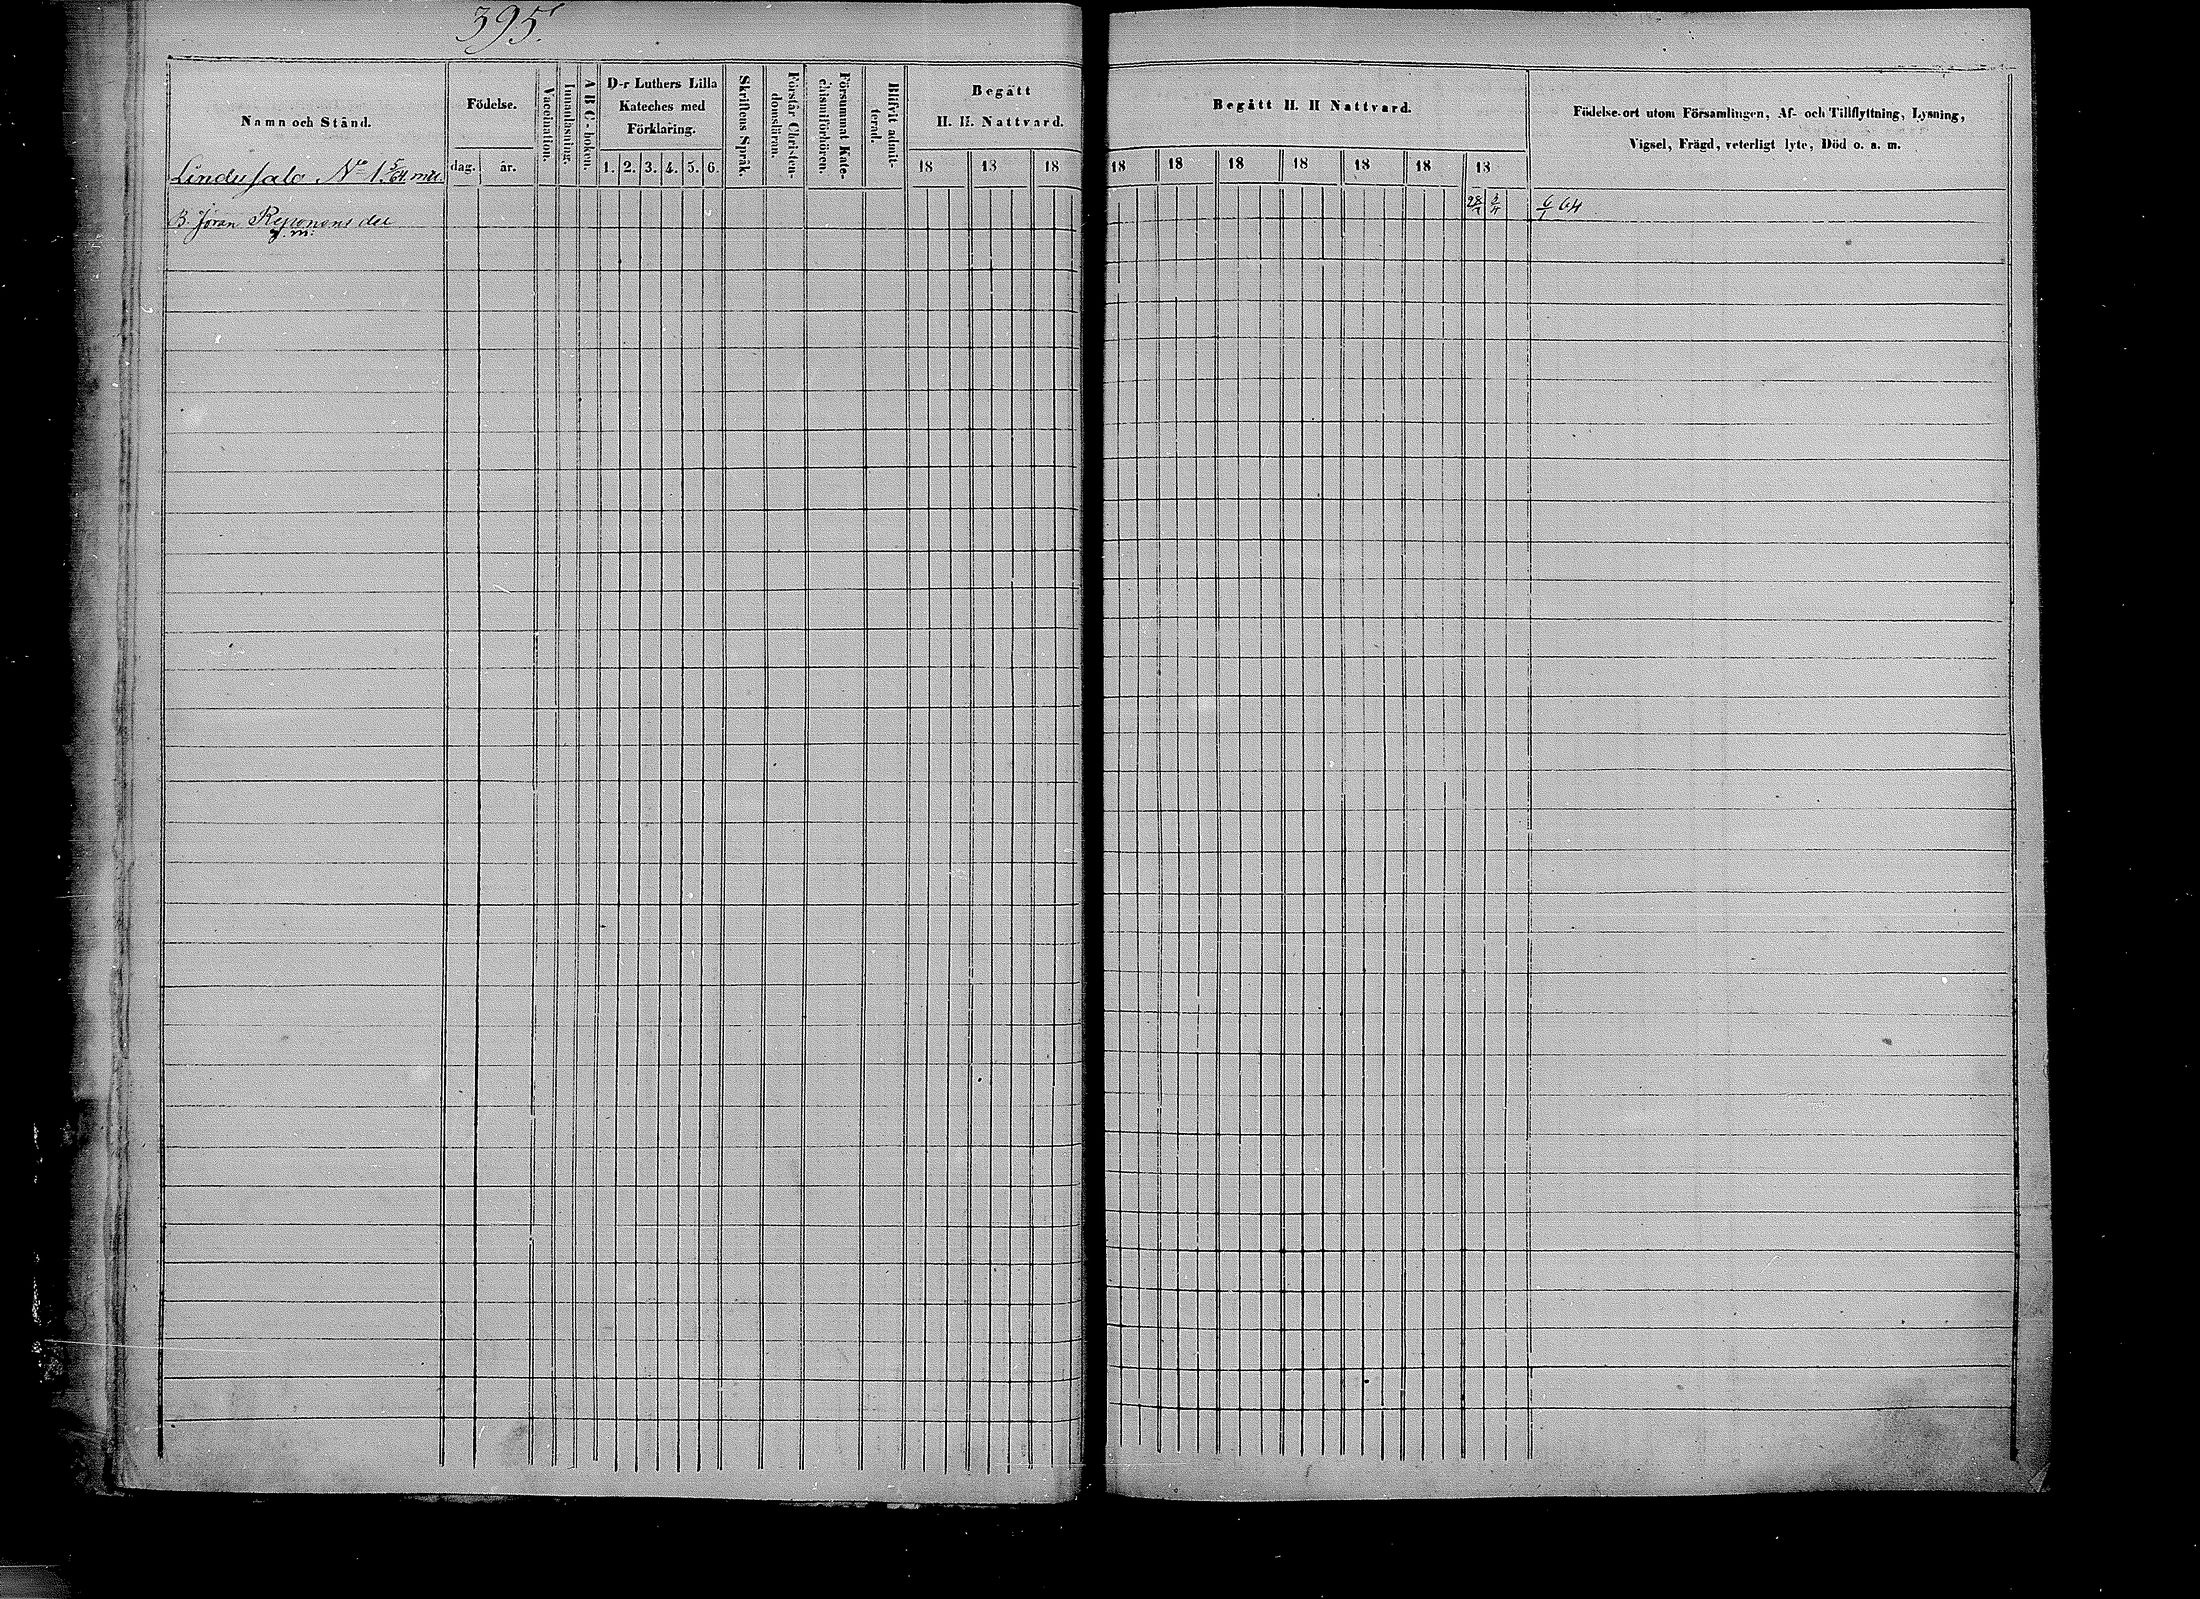 395.
Namn och Stånd.
Födelse.
dag. år.
Vaccination.
Innanläsning.
A B C-boken.
D-r Luthers Lilla
Kateches med
Förklaring.
1. 2. 3. 4. 5. 6.
Skriftens Språk.
Förstår Christen-
domsläran.
Försummat Kate-
chismiförhören.
Blifvit admit-
terad.
Begått
H. H. Nattvard.
18 18 18
Begått H. H Nattvard.
18 18 18 18 18 18 18
Födelse-ort utom Församlingen, Af- och Tillflyttning, Lysning,
Vigsel, Frägd, veterligt lyte, Död o. a. m.
Lindusalo No 1
B. Jöran Reponens
6/1 64